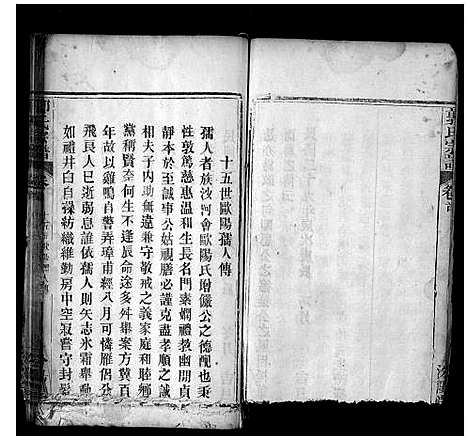 十五世歐陽孺人傳
孺人者族汝河會歐陽氏增儼公之德配也秉
性敦篤慈惠溫和生長名門素嫻禮教幽閒貞
靜本於至誠事公姑視膳必謹克盡孝順之誠
相夫子内助無違兼守敬戒之義家庭和睦鄉
黨稱賢奈何生不逢辰命途多舛舉案方冀百
年故以雞鳴自警弄璋甫經八月可憐雁侶分
飛良人已逝弱息誰依孺人則矢志氷霜舉動
如禮井臼自操紡織維勤房中空寂嘗守封髮